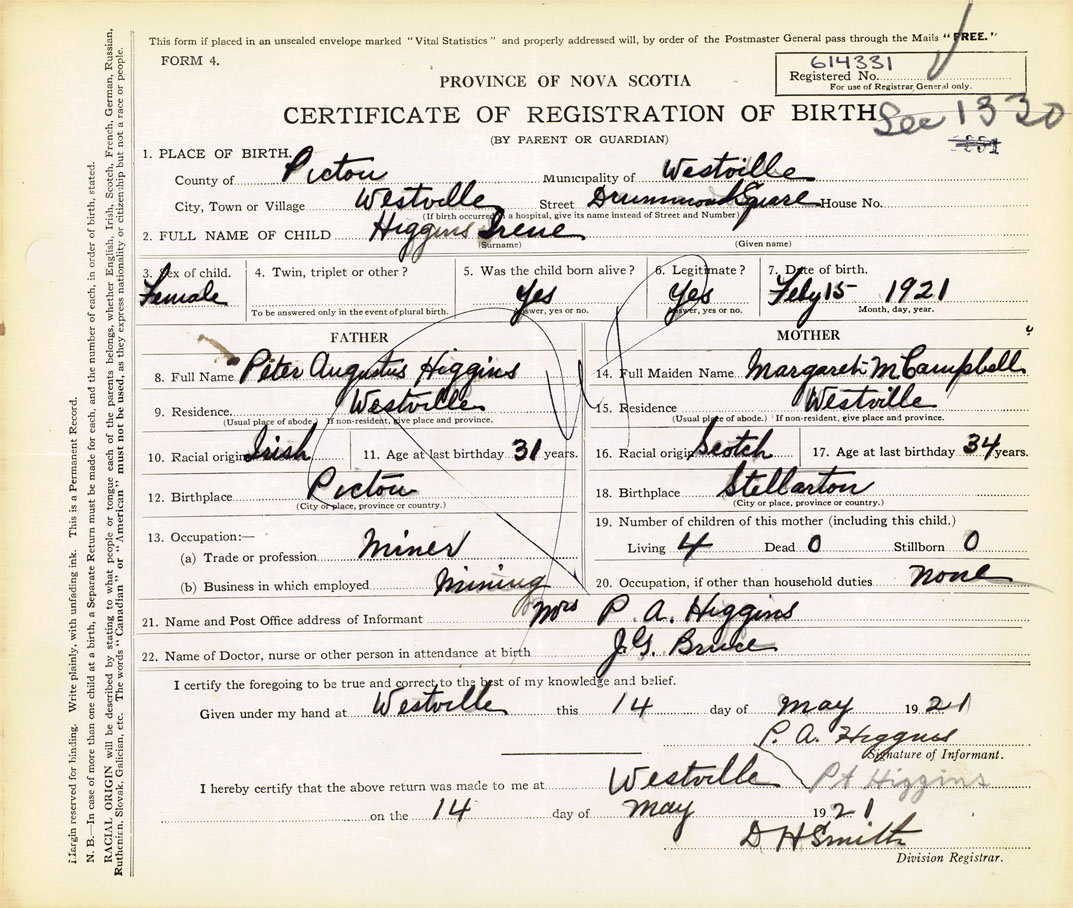 This form if placed in an unsealed envelope marked "Vital Statistics" and properly addressed will, by order of the Postmaster General pass through the Mails "FREE."
FORM 4.
614331
Registered No.
For use of Registrar General only.
PROVINCE OF NOVA SCOTIA
CERTIFICATE OF REGISTRATION OF BIRTH
See 1330
(BY PARENT OR GUARDIAN)
1. PLACE OF BIRTH.
County of Pictou Municipality of Westville
City, Town or Village Westville Street Drummond Square House No.
(If birth occurred in a hospital, give its name instead of Street and Number)
2. FULL NAME OF CHILD Higgins Irene
(Surname) (Given name)
3. Sex of child. 4. Twin, triplet or other? 5. Was the child born alive? 6. Legitimate? 7. Date of birth.
Female Yes Yes Feby 15 1921
To be answered only in the event of plural birth. Answer, yes or no. Answer, yes or no. Month, day, year.
FATHER MOTHER
8. Full Name Peter Augustus Higgins 14. Full Maiden Name Margaret M Campbell
9. Residence Westville 15. Residence Westville
(Usual place of abode.) If non-resident, give place and province. (Usual place of abode.) If non-resident, give place and province.
10. Racial origin Irish 11. Age at last birthday 31 years. 16. Racial origin Scotch 17. Age at last birthday 34 years.
12. Birthplace Pictou 18. Birthplace Stellarton
(City or place, province or country.) (City or place, province or country.)
13. Occupation:— 19. Number of children of this mother (including this child.)
(a) Trade or profession Miner Living 4 Dead 0 Stillborn 0
(b) Business in which employed mining 20. Occupation, if other than household duties none
21. Name and Post Office address of Informant Mrs P. A. Higgins
22. Name of Doctor, nurse or other person in attendance at birth J.G. Bruce
I certify the foregoing to be true and correct to the best of my knowledge and belief.
Given under my hand at Westville this 14 day of May 1921
P. A. Higgins
Signature of Informant.
P A Higgins
I hereby certify that the above return was made to me at Westville
on the 14 day of May 1921
D H Smith
Division Registrar.
Margin reserved for binding. Write plainly, with unfading ink. This is a Permanent Record.
N. B.—In case of more than one child at a birth, a Separate Return must be made for each, and the number of each, in order of birth, stated.
RACIAL ORIGIN will be described by stating to what people or tongue each of the parents belongs, whether English, Irish, Scotch, French, German, Russian,
Ruthenian, Slovak, Galician, etc. The words "Canadian" or "American" must not be used, as they express nationality or citizenship but not a race or people.